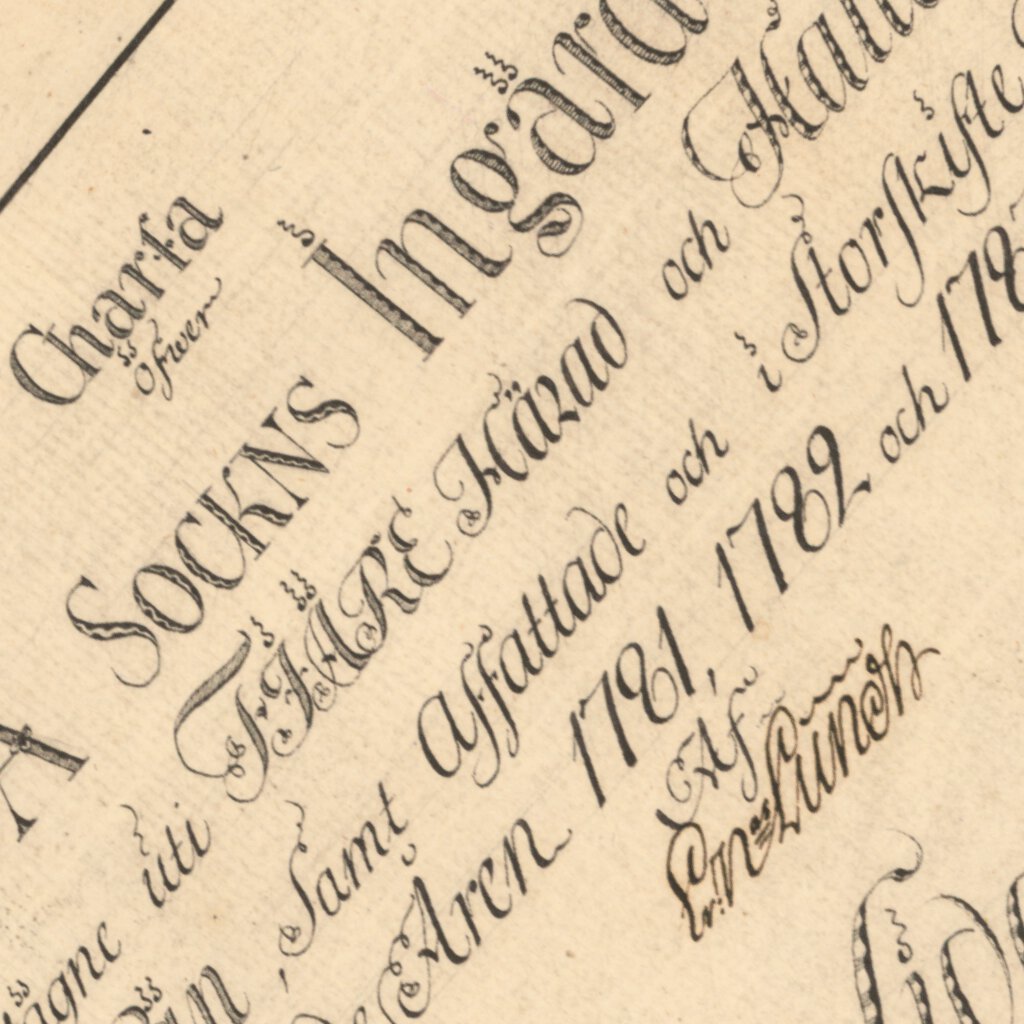 Charta
öfwer
A SOCKNS Ingära
ägne uti FJÄRE Härad och Hall
än, Samt affattade och i Storskifte
Åren 1781, 1782 och 178
Af